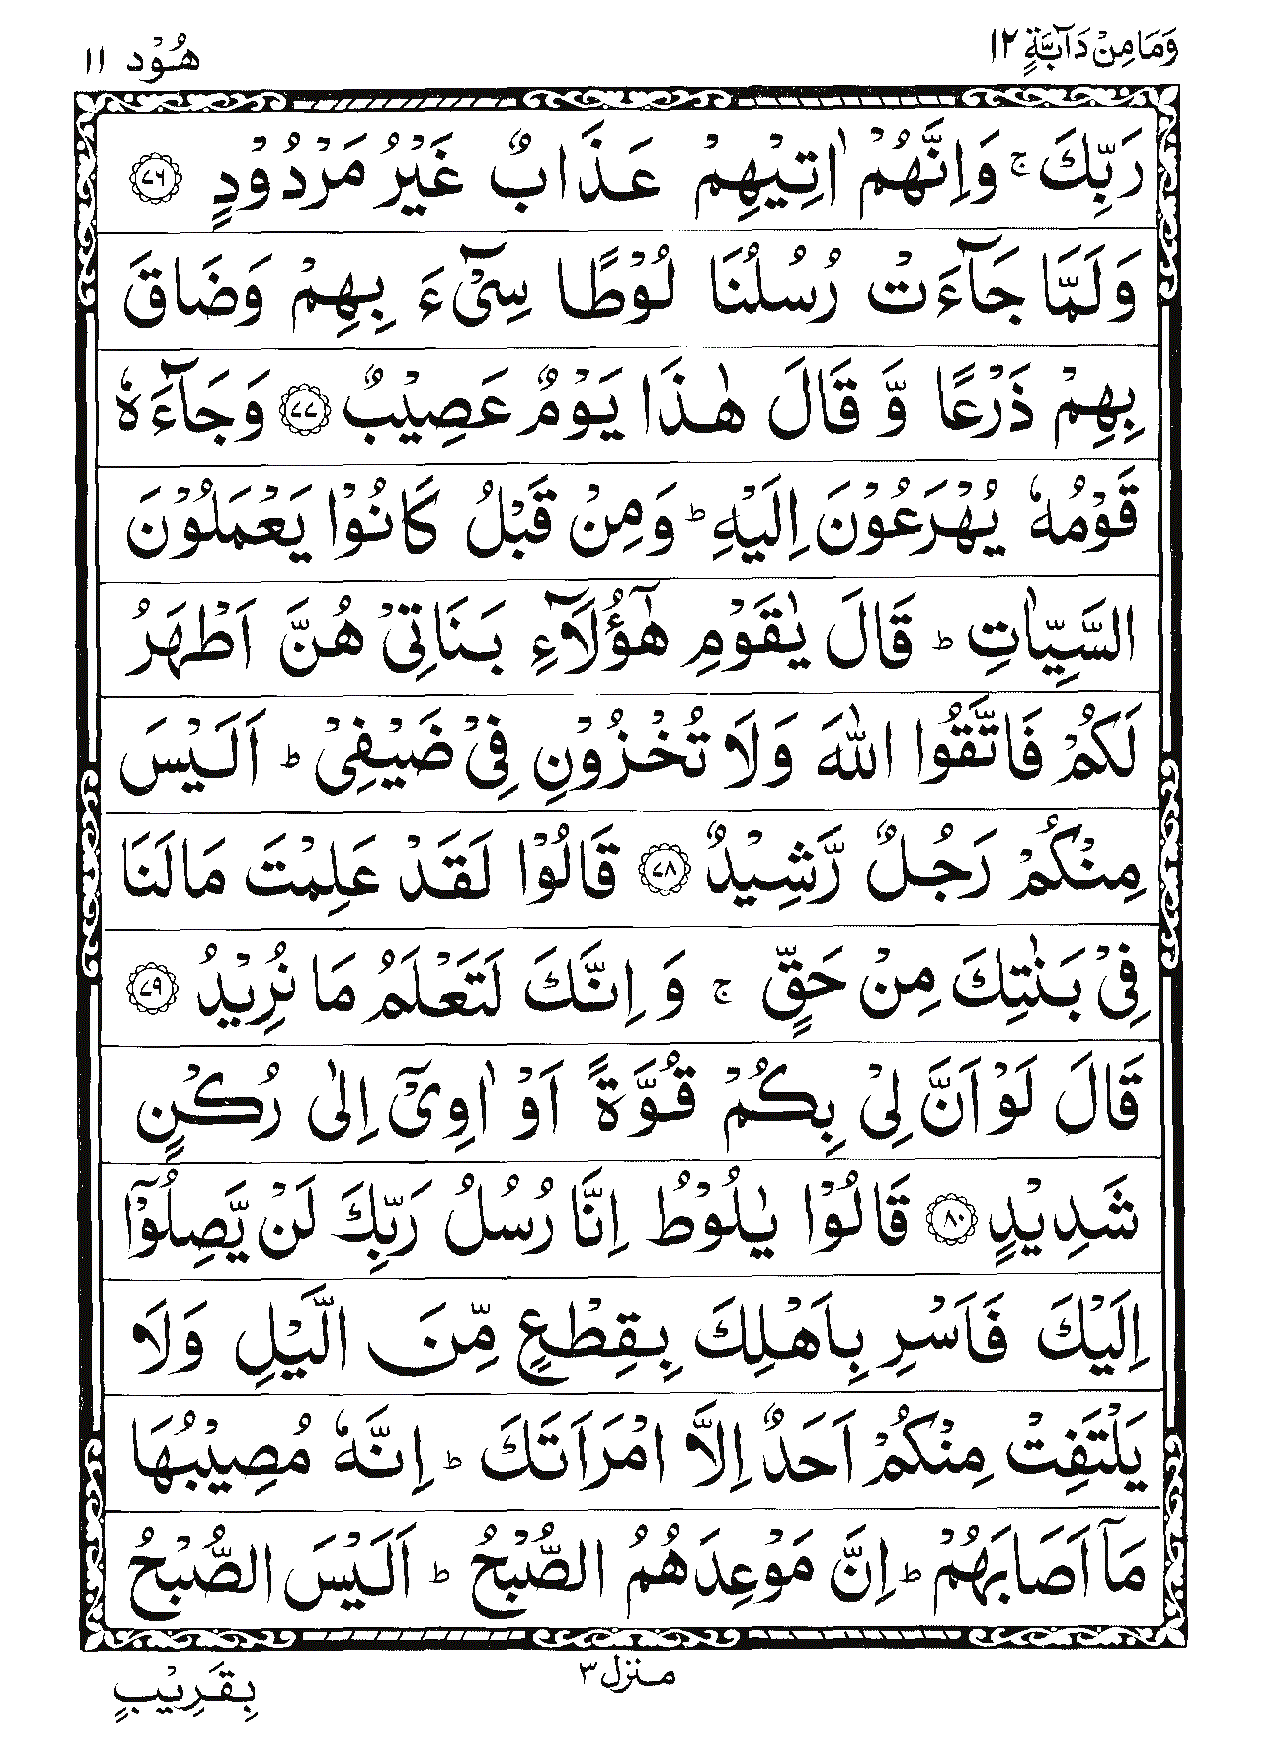 وَمَا مِنْ دَآبَّةٍ ١٢
هُوْد ١١
رَبِّكَ ۚ وَاِنَّهُمْ اٰتِيْهِمْ عَذَابٌ غَيْرُ مَرْدُوْدٍ ﴿۷۶﴾
وَلَمَّا جَآءَتْ رُسُلُنَا لُوْطًا سِیْٓءَ بِهِمْ وَضَاقَ
بِهِمْ ذَرْعًا وَّ قَالَ هٰذَا يَوْمٌ عَصِيْبٌ ﴿۷۷﴾ وَجَآءَهٗ
قَوْمُهٗ يُهْرَعُوْنَ اِلَيْهِ ؕ وَمِنْ قَبْلُ كَانُوْا يَعْمَلُوْنَ
السَّيِّاٰتِ ؕ قَالَ يٰقَوْمِ هٰٓؤُلَآءِ بَنَاتِیْ هُنَّ اَطْهَرُ
لَكُمْ فَاتَّقُوا اللّٰهَ وَلَا تُخْزُوْنِ فِیْ ضَيْفِیْ ؕ اَلَيْسَ
مِنْكُمْ رَجُلٌ رَّشِيْدٌ ﴿۷۸﴾ قَالُوْا لَقَدْ عَلِمْتَ مَا لَنَا
فِیْ بَنٰتِكَ مِنْ حَقٍّ ۚ وَ اِنَّكَ لَتَعْلَمُ مَا نُرِيْدُ ﴿۷۹﴾
قَالَ لَوْ اَنَّ لِیْ بِكُمْ قُوَّةً اَوْ اٰوِیْٓ اِلٰى رُكْنٍ
شَدِيْدٍ ﴿۸۰﴾ قَالُوْا يٰلُوْطُ اِنَّا رُسُلُ رَبِّكَ لَنْ يَّصِلُوْٓا
اِلَيْكَ فَاَسْرِ بِاَهْلِكَ بِقِطْعٍ مِّنَ الَّيْلِ وَلَا
يَلْتَفِتْ مِنْكُمْ اَحَدٌ اِلَّا امْرَاَتَكَ ؕ اِنَّهٗ مُصِيْبُهَا
مَآ اَصَابَهُمْ ؕ اِنَّ مَوْعِدَهُمُ الصُّبْحُ ؕ اَلَيْسَ الصُّبْحُ
منزل ٣
بِقَرِيْبٍ